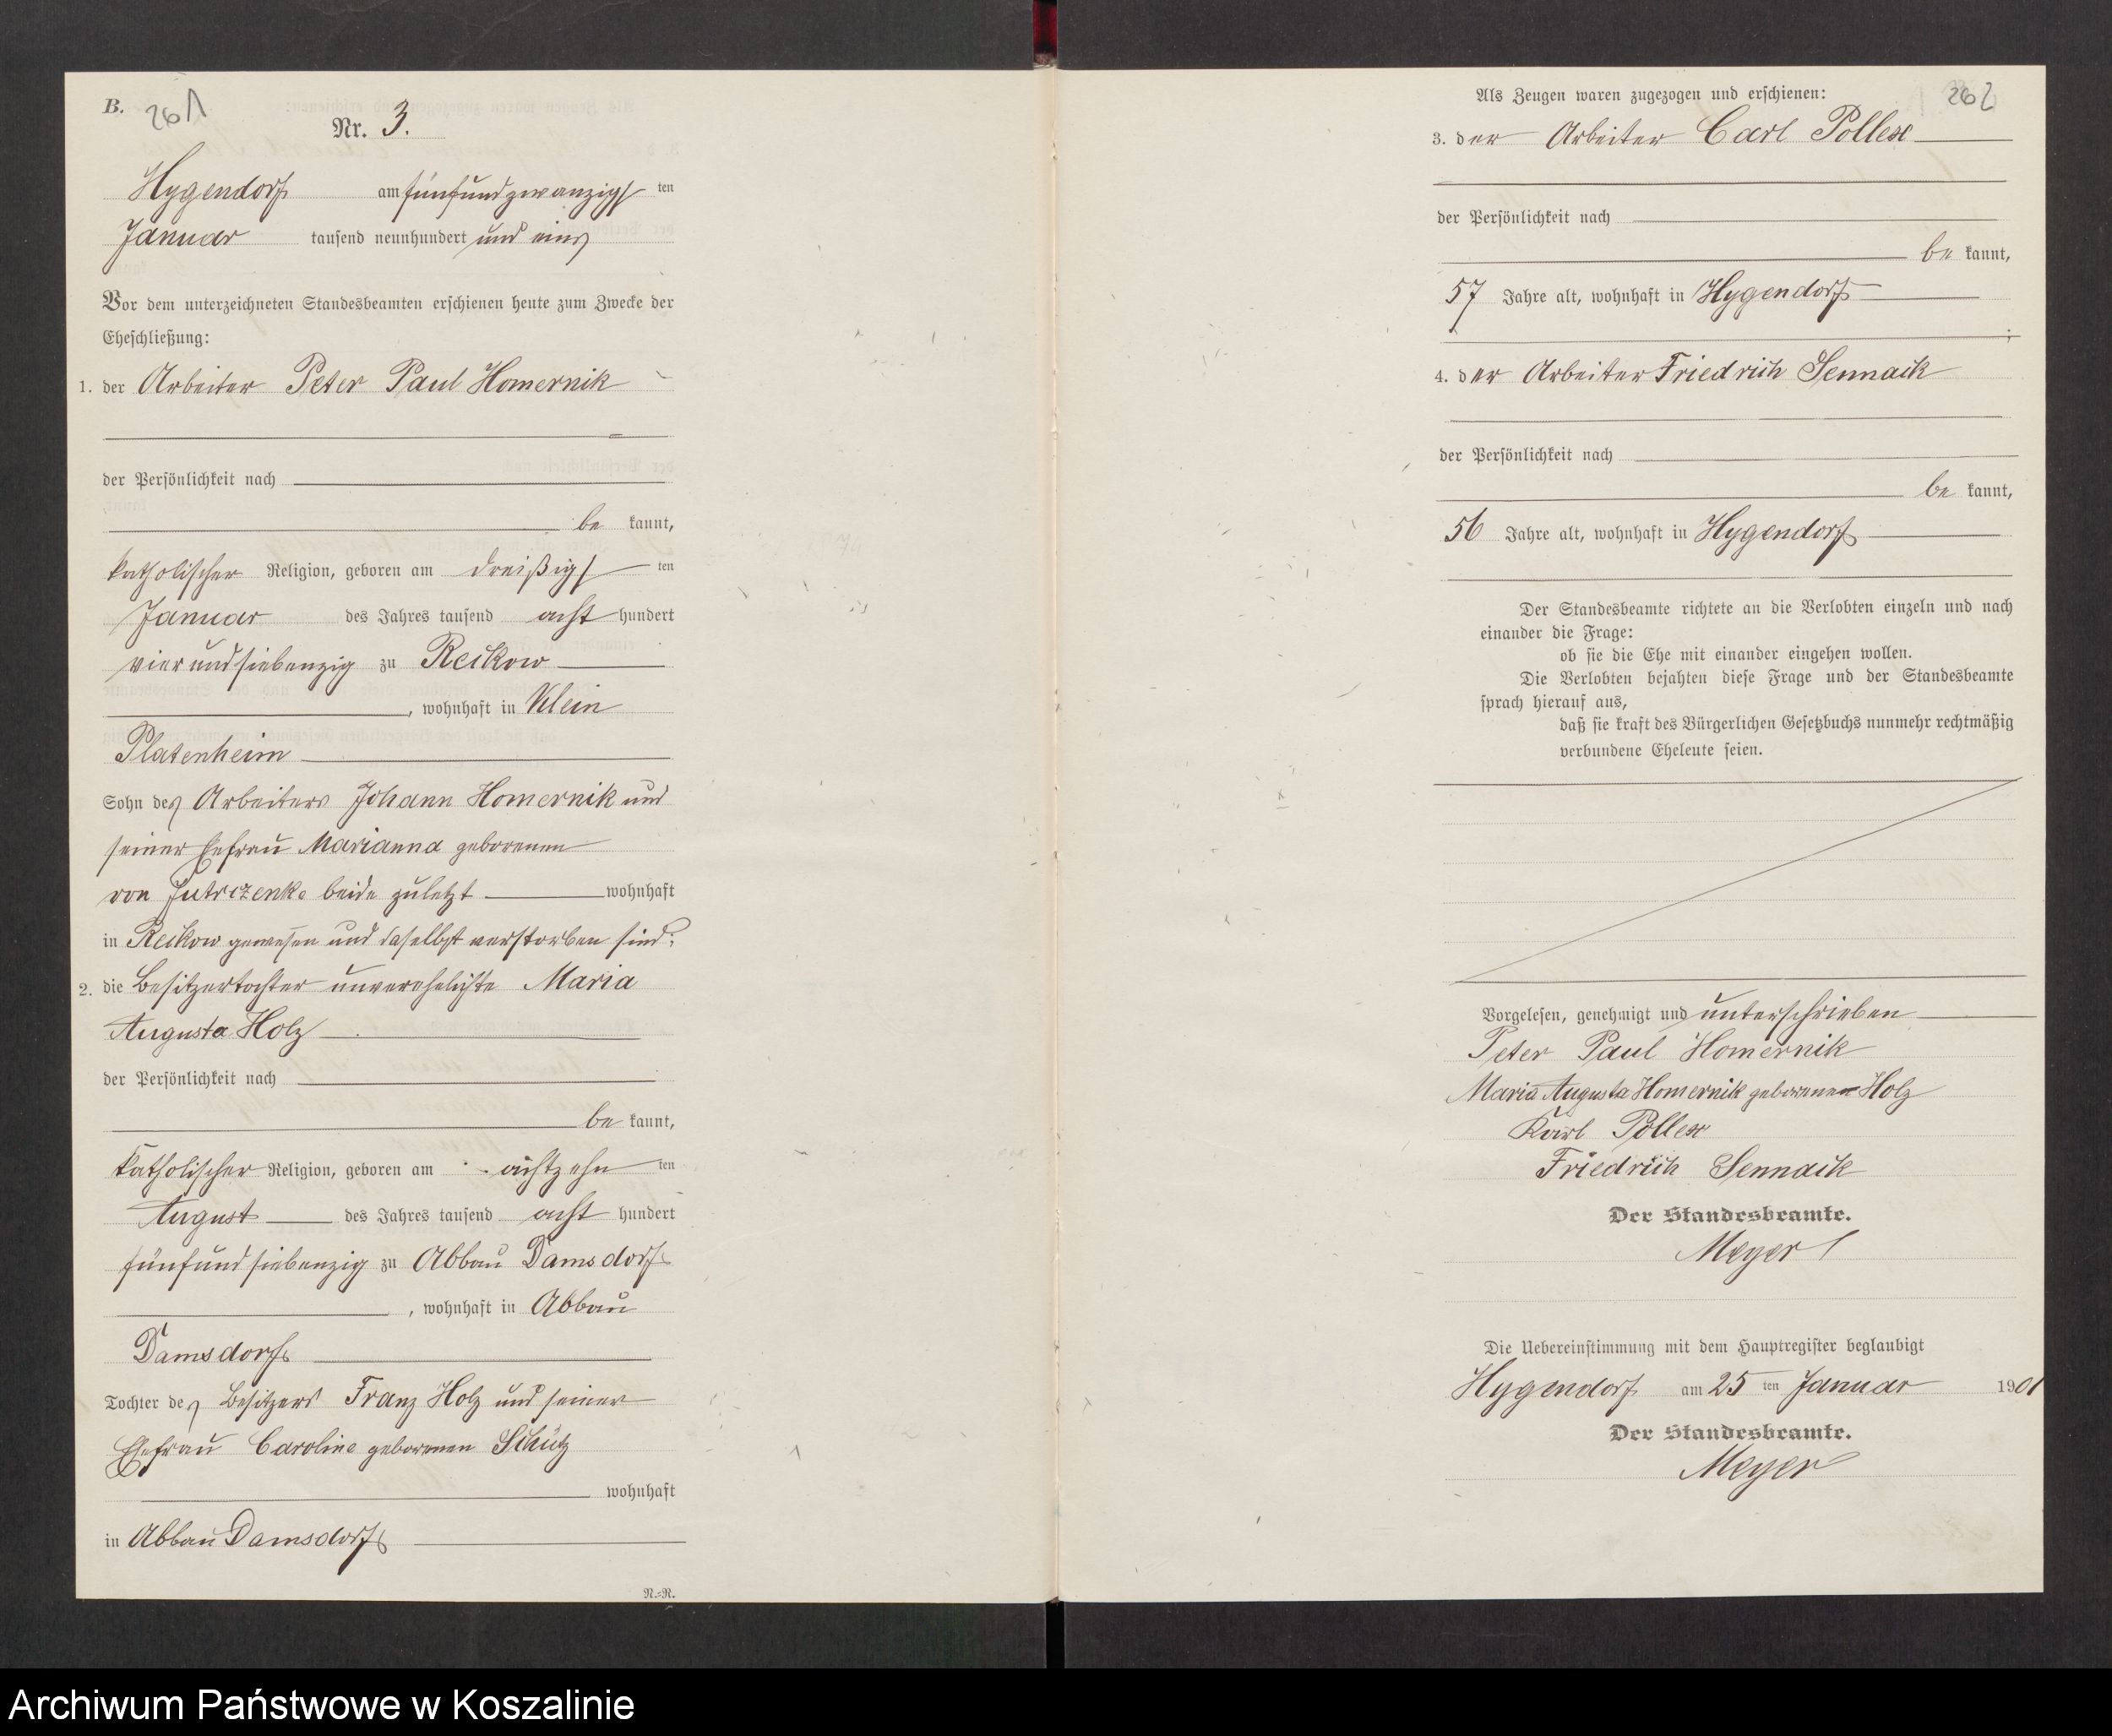 B. 261
Nr. 3.
Hygendorf am fünfundzwanzigsten
Januar tausend neunhundert und eins
Vor dem unterzeichneten Standesbeamten erschienen heute zum Zwecke der
Eheschließung:
1. der Arbeiter Peter Paul Homernik
der Persönlichkeit nach
be kannt,
katholischer Religion, geboren am dreißigsten
Januar des Jahres tausend acht hundert
vierundsiebenzig zu Reckow
, wohnhaft in Klein
Platenheim
Sohn des Arbeiters Johann Homernik und
seiner Ehefrau Marianna geborenen
von Jutrczenka beide zuletzt wohnhaft
in Reckow gewesen und daselbst verstorben sind;
2. die Besitzertochter unverehelichte Maria
Augusta Holz
der Persönlichkeit nach
be kannt,
katholischer Religion, geboren am achtzehn ten
August des Jahres tausend acht hundert
fünfundsiebenzig zu Abbau Damsdorf
, wohnhaft in Abbau
Damsdorf
Tochter des Besitzers Franz Holz und seiner
Ehefrau Caroline geborenen Schütz
wohnhaft
in Abbau Damsdorf
N.=N.
262
Als Zeugen waren zugezogen und erschienen:
3. der Arbeiter Carl Pollex
der Persönlichkeit nach
be kannt,
57 Jahre alt, wohnhaft in Hygendorf
;
4. der Arbeiter Friedrich Sennack
der Persönlichkeit nach
be kannt,
56 Jahre alt, wohnhaft in Hygendorf
Der Standesbeamte richtete an die Verlobten einzeln und nach
einander die Frage:
ob sie die Ehe mit einander eingehen wollen.
Die Verlobten bejahten diese Frage und der Standesbeamte
sprach hierauf aus,
daß sie kraft des Bürgerlichen Gesetzbuchs nunmehr rechtmäßig
verbundene Eheleute seien.
Vorgelesen, genehmigt und unterschrieben
Peter Paul Homernik
Maria Augusta Homernik geborenen Holz
Karl Pollex
Friedrich Sennack
Der Standesbeamte.
Meyer
Die Uebereinstimmung mit dem Hauptregister beglaubigt
Hygendorf am 25 ten Januar 1901
Der Standesbeamte.
Meyer
Archiwum Państwowe w Koszalinie